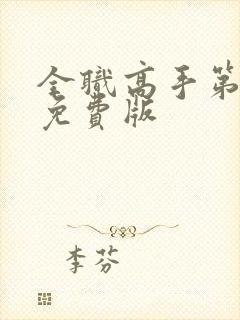 全職高手第
免費版
李芬